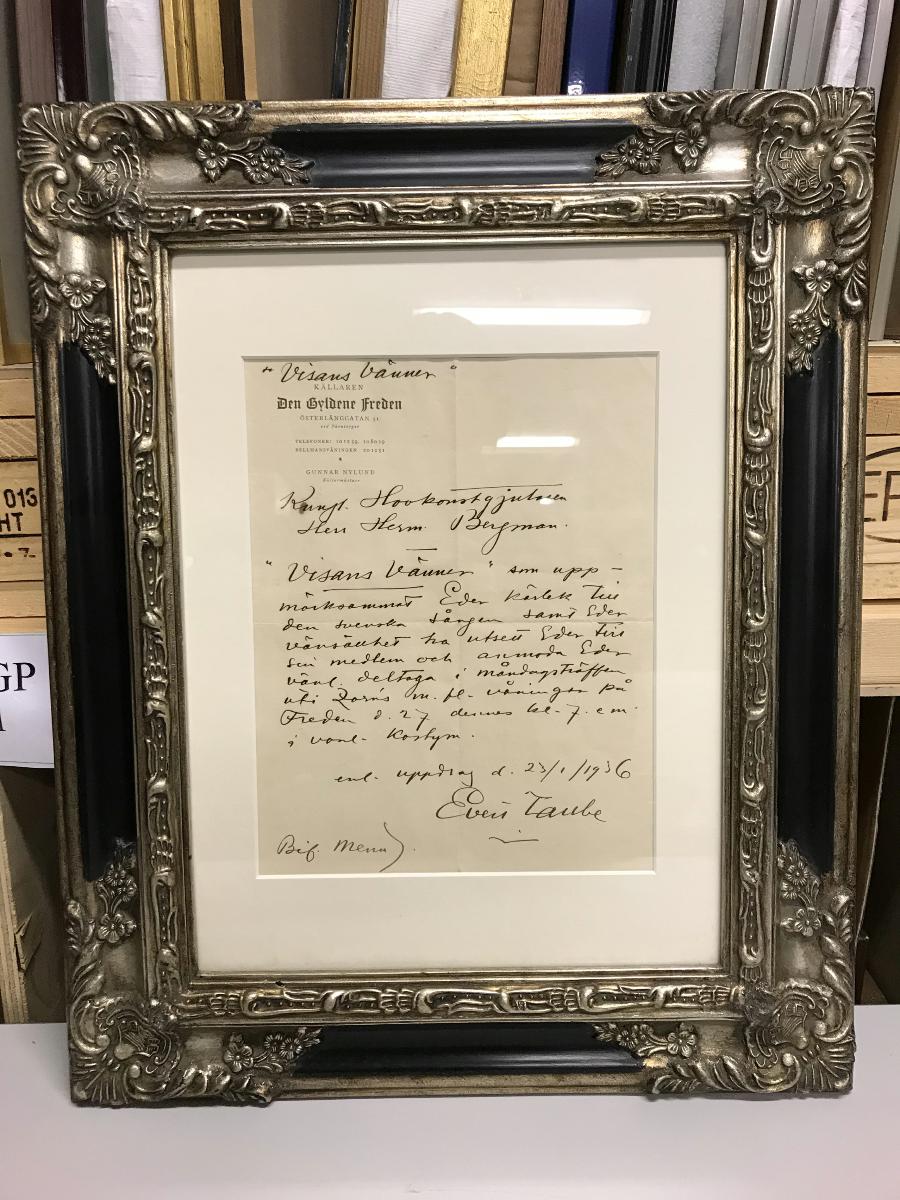 "Visans Vänner"
KÄLLAREN
Den Gyldene Freden
ÖSTERLÅNGGATAN 51
TELEFONER: 101259, 108019
BESTÄLLNINGAR 201251
GUNNAR NYLUND
Källarmästare
Kungl. Hovkonstgjutaren
Herr Herm. Bergman.
"Visans Vänner" som upp-
märksammat Eder kärlek till
den svenska sången samt Eder
vänsällhet ha utsett Eder till
sin medlem och anmoda Eder
vänl. deltaga i måndagsträffen
uti Zorns m. fl. våningar på
Freden d. 27 dennes kl. 7. e m.
i vanl. Kostym.
enl. uppdrag d. 23/1/1936
Evert Taube
Bif. Menu).
013
HT
GP